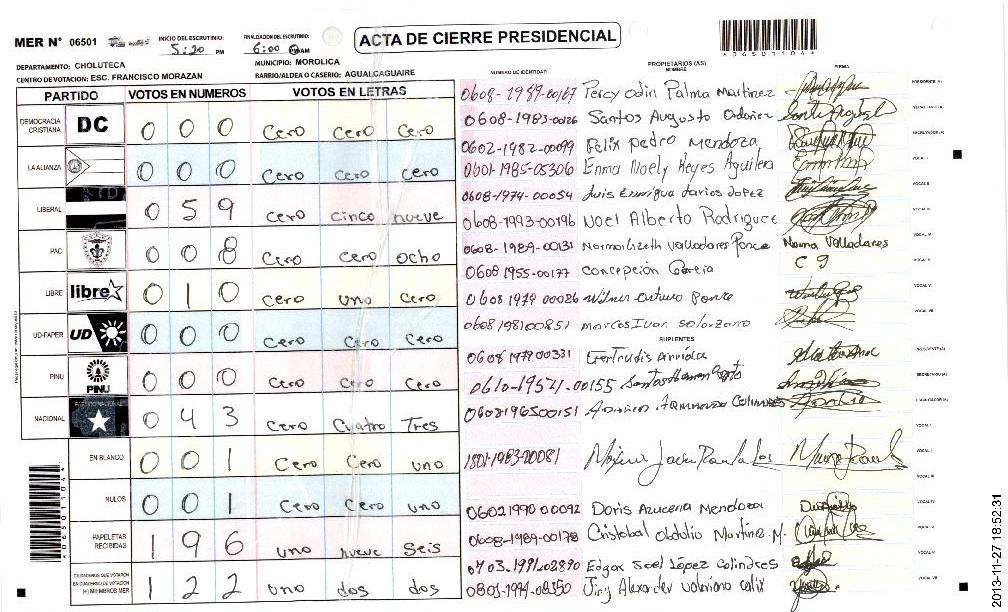 MER N° 06501
INICIO DEL ESCRUTINIO: 5:20 PM
FINALIZACION DEL ESCRUTINIO: 6:00
ACTA DE CIERRE PRESIDENCIAL
DEPARTAMENTO: CHOLUTECA
MUNICIPIO: MOROLICA
CENTRO DE VOTACION: ESC. FRANCISCO MORAZAN
BARRIO/ALDEA O CASERIO: AGUALCAGUAIRE
*06501104*
PARTIDO VOTOS EN NUMEROS VOTOS EN LETRAS
DEMOCRACIA CRISTIANA DC 0 0 0 Cero Cero Cero
LA ALIANZA 0 0 0 Cero Cero Cero
LIBERAL 0 5 9 Cero cinco nueve
PAC 0 0 8 Cero Cero ocho
LIBRE libre 0 1 0 Cero uno Cero
UD-FAPER UD 0 0 0 Cero Cero Cero
PINU PINU 0 0 0 Cero Cero Cero
NACIONAL 0 4 3 Cero Cuatro Tres
EN BLANCO 0 0 1 Cero Cero uno
NULOS 0 0 1 Cero Cero uno
PAPELETAS RECIBIDAS 1 9 6 uno nueve Seis
CIUDADANOS QUE VOTARON EN CUADERNO DE VOTACION (+) MIEMBROS MER 1 2 2 uno dos dos
NUMERO DE IDENTIDAD PROPIETARIOS (AS) NOMBRE FIRMA
0608-1989-00167 Percy Odin Palma Martinez PRESIDENTE (A)
0608-1983-00126 Santos Augusto Ordoñez SECRETARIO (A)
0602-1982-00099 Felix pedro Mendoza ESCRUTADOR (A)
0601-1985-05306 Enma Noely Reyes Aguilera VOCAL I
0608-1974-00054 Luis Enrrique darios Lopez VOCAL II
0608-1993-00196 Noel Alberto Rodriguez VOCAL III
0608-1989-00131 Norma lizeth valladares Ponce Norma Valladares VOCAL IV
0608 1955-00177 Concepción Garcia C g VOCAL V
0608 1979 00026 Wilmer Arturo Ponce VOCAL VI
0608 1981 00851 Marcos Ivan solorzano VOCAL VII
SUPLENTES
0608 1977 00331 Gertrudis PRESIDENTE (A)
0610-1952-00155 Santos SECRETARIO (A)
0608196500151 ESCRUTADOR (A)
VOCAL I
1801-1983-00081 VOCAL II
VOCAL III
0602 1990 00092 Doris Azucena Mendoza VOCAL IV
0608-1989-00178 Cristobal Martinez M. VOCAL V
0703-1991-02890 Edgar Joel López Colindres VOCAL VI
0801-1994-08350 Alexander VOCAL VII
*06501104*
2013-11-27 18:52:31